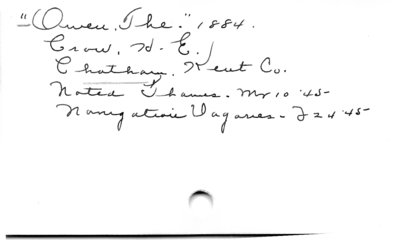 "Owen, The." 1884.
Crow, H. E.
Chatham, Kent Co.
Noted Thames. Mr 10 '45
Navigation Vagaries. J 24 '45